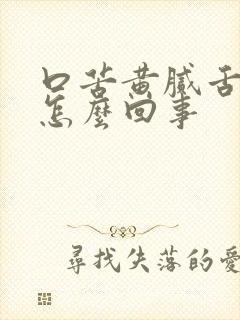 口苦黄膩舌
怎麼回事
尋找失落的愛